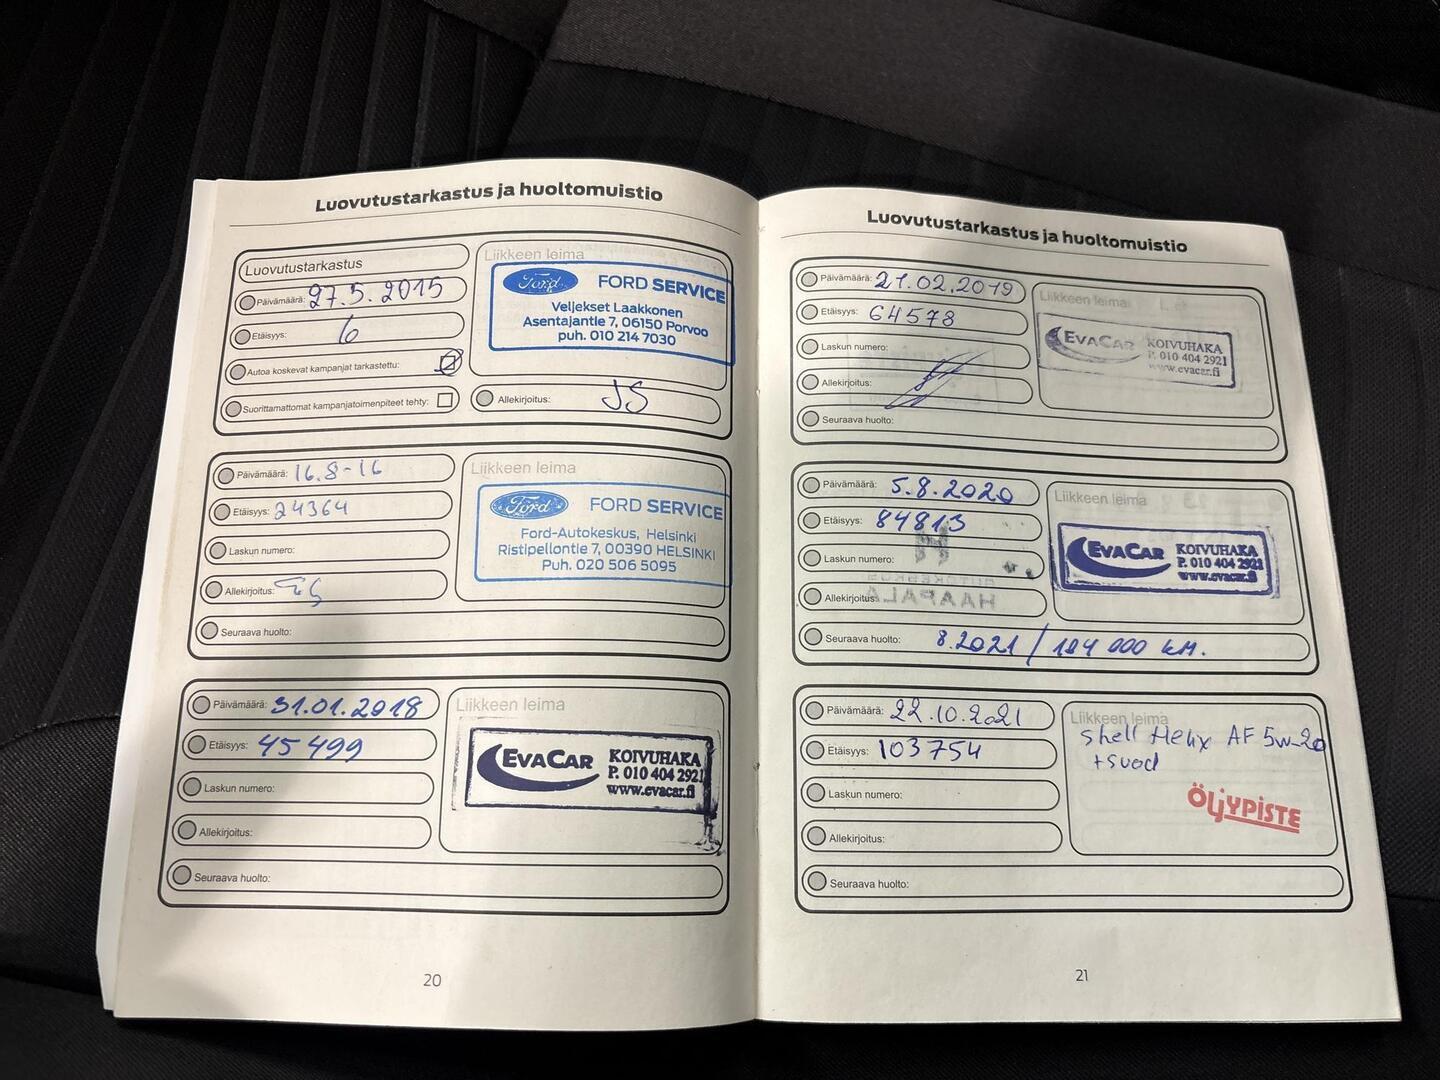 Luovutustarkastus ja huoltomuistio
Luovutustarkastus
Päivämäärä: 27.5.2015
Etäisyys: 6
Autoa koskevat kampanjat tarkastettu:
Suorittamattomat kampanjatoimenpiteet tehty:
Liikkeen leima
Ford FORD SERVICE
Veljekset Laakkonen
Asentajantie 7, 06150 Porvoo
puh. 010 214 7030
Allekirjoitus: JS
Päivämäärä: 16.8-16
Etäisyys: 24364
Laskun numero:
Allekirjoitus:
Seuraava huolto:
Liikkeen leima
Ford FORD SERVICE
Ford-Autokeskus, Helsinki
Ristipellontie 7, 00390 HELSINKI
Puh. 020 506 5095
Päivämäärä: 31.01.2018
Etäisyys: 45499
Laskun numero:
Allekirjoitus:
Seuraava huolto:
Liikkeen leima
EVACAR KOIVUHAKA
P. 010 404 2921
www.evacar.fi
20
Luovutustarkastus ja huoltomuistio
Päivämäärä: 21.02.2019
Etäisyys: 64578
Laskun numero:
Allekirjoitus:
Seuraava huolto:
Liikkeen leima
EVACAR KOIVUHAKA
P. 010 404 2921
www.evacar.fi
Päivämäärä: 5.8.2020
Etäisyys: 84813
Laskun numero:
Allekirjoitus:
Seuraava huolto: 8.2021 / 104 000 km.
Liikkeen leima
EVACAR KOIVUHAKA
P. 010 404 2921
www.evacar.fi
HAAPALA
Päivämäärä: 22.10.2021
Etäisyys: 103754
Laskun numero:
Allekirjoitus:
Seuraava huolto:
Liikkeen leima
Shell Helix AF 5w-20
+suod
ÖLJYPISTE
21